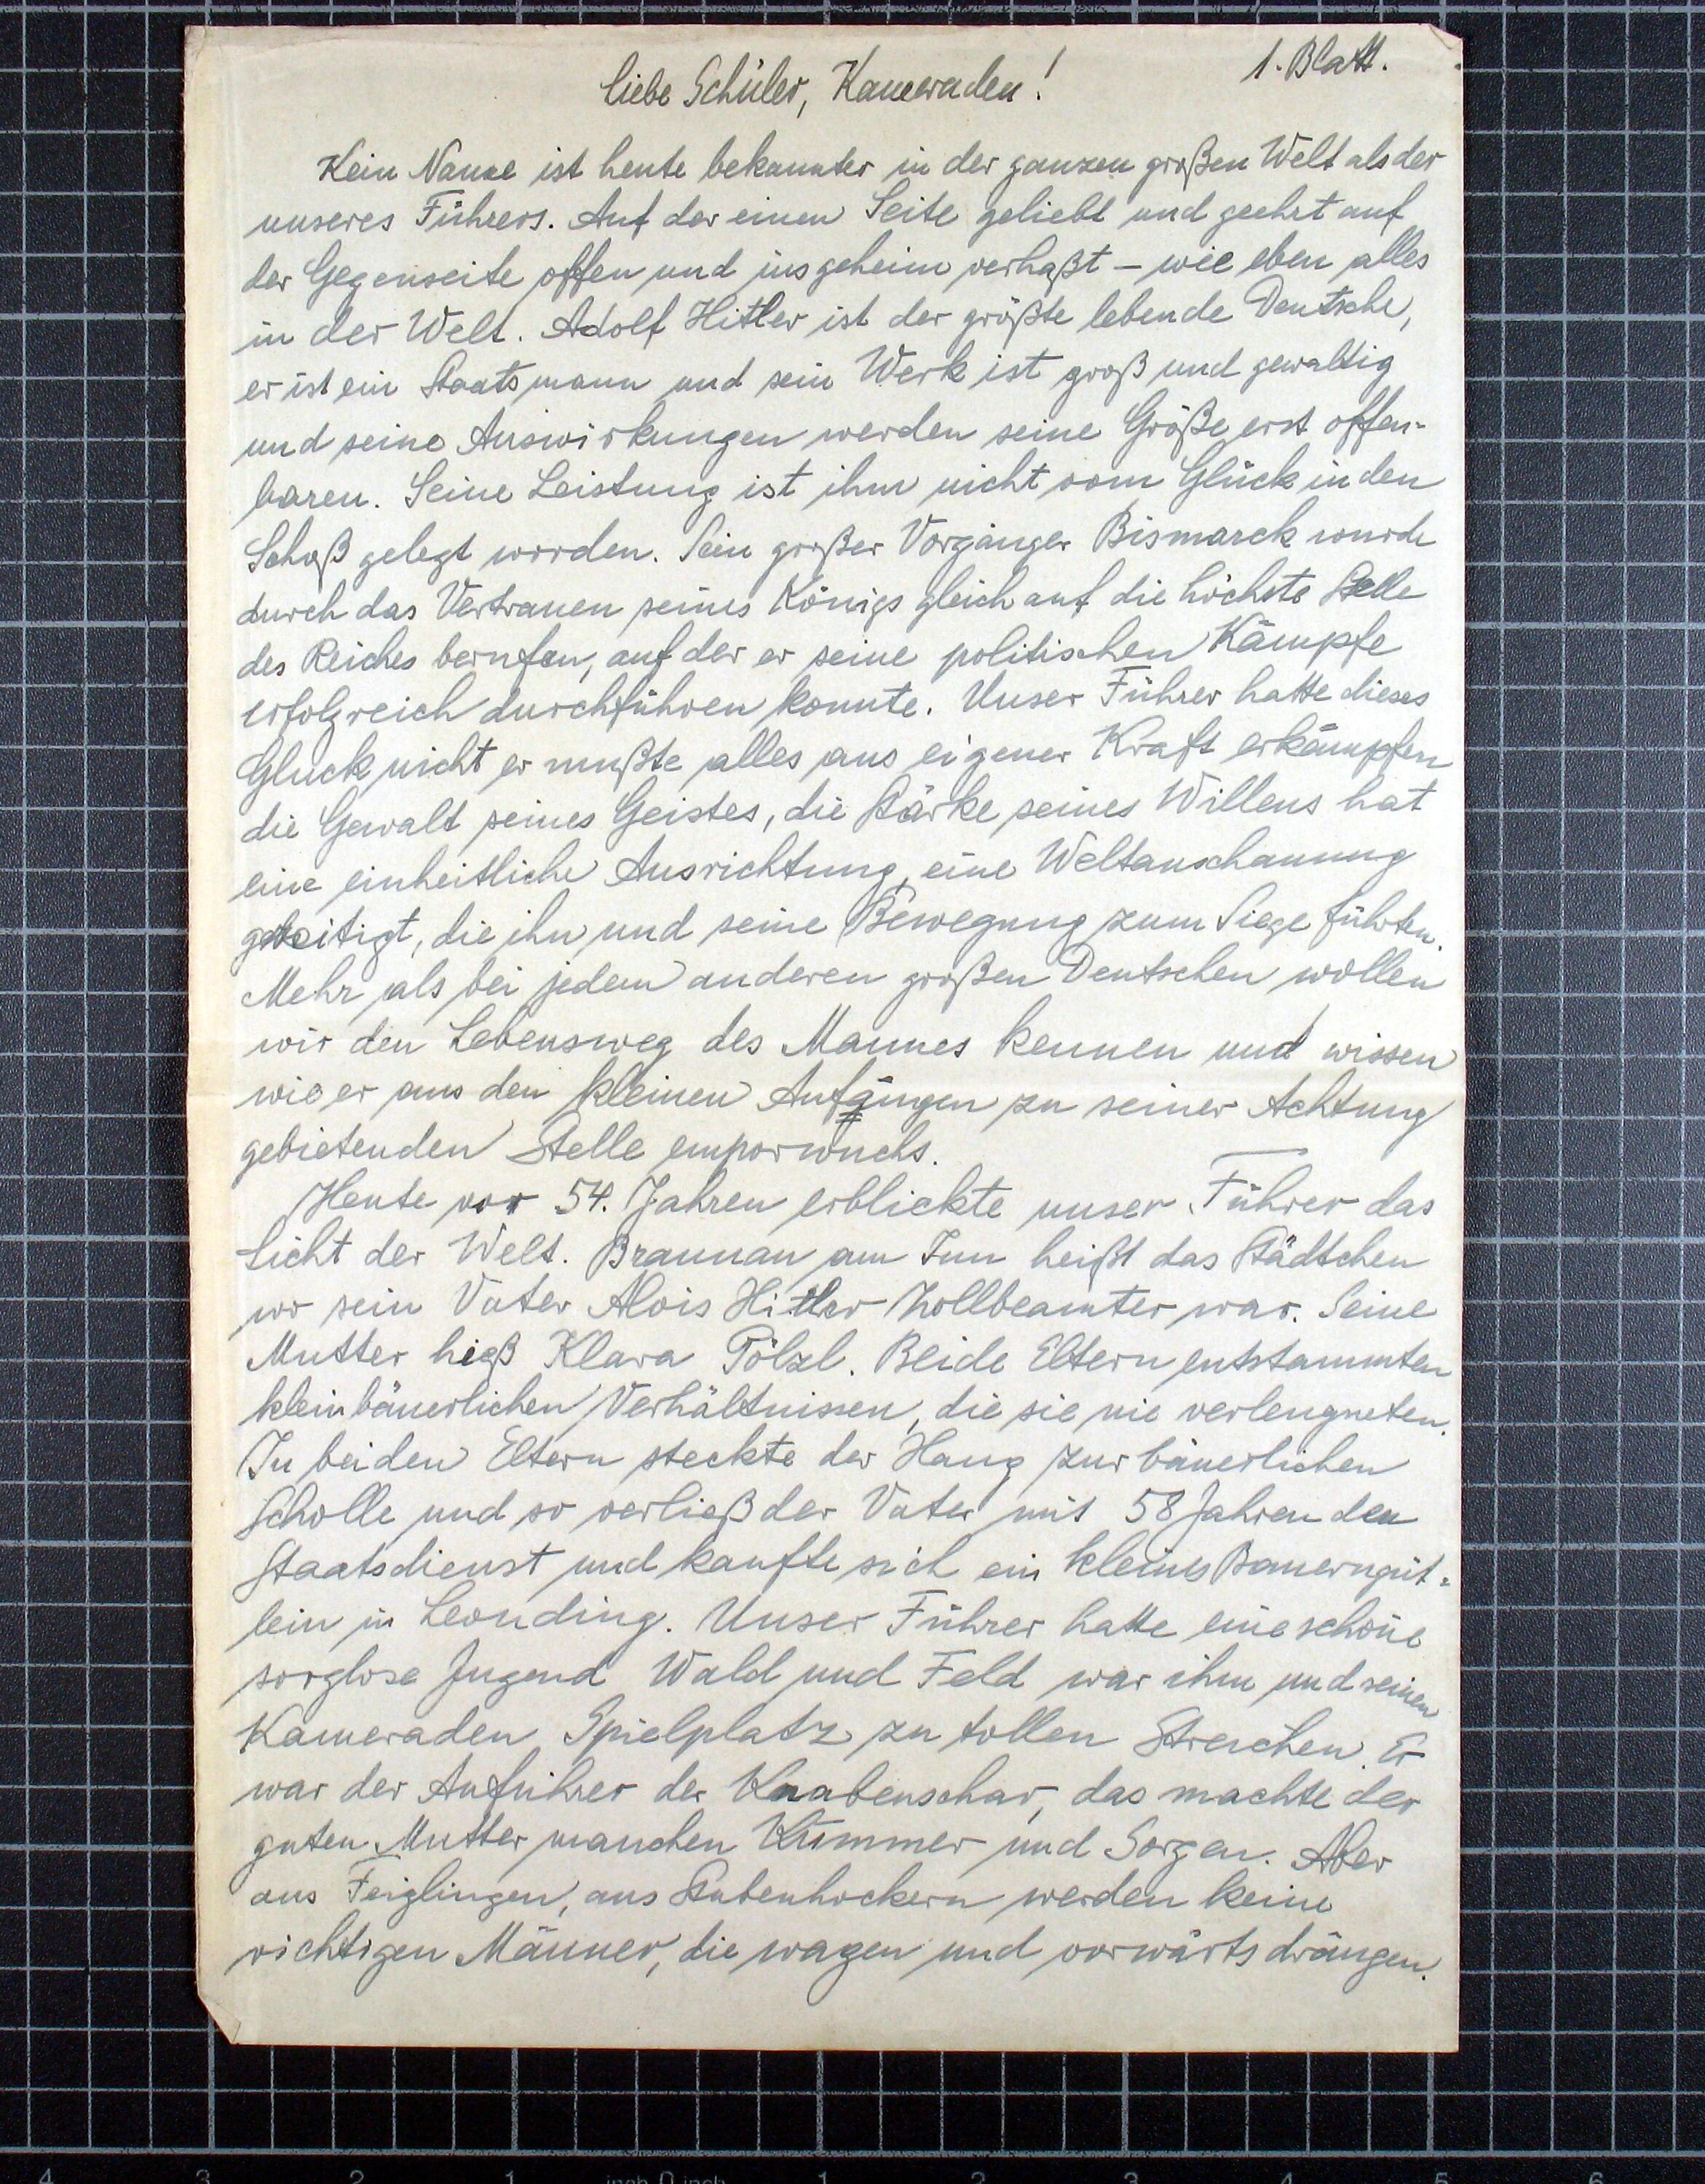 1. Blatt.
Liebe Schüler, Kameraden!
Kein Name ist heute bekannter in der ganzen großen Welt als der
unseres Führers. Auf der einen Seite geliebt und geehrt auf
der Gegenseite offen und insgeheim verhaßt – wie eben alles
in der Welt. Adolf Hitler ist der größte lebende Deutsche,
er ist ein Staatsmann und sein Werk ist groß und gewaltig
und seine Auswirkungen werden seine Größe erst offen-
baren. Seine Leistung ist ihm nicht vom Glück in den
Schoß gelegt worden. Sein großer Vorgänger Bismarck wurde
durch das Vertrauen seines Königs gleich auf die höchste Stelle
des Reiches berufen, auf der er seine politischen Kämpfe
erfolgreich durchführen konnte. Unser Führer hatte dieses
Glück nicht er mußte alles aus eigener Kraft erkämpfen
die Gewalt seines Geistes, die Stärke seines Willens hat
eine einheitliche Ausrichtung, eine Weltanschauung
gezeitigt, die ihn und seine Bewegung zum Siege führten.
Mehr als bei jedem anderen großen Deutschen wollen
wir den Lebensweg des Mannes kennen und wissen
wie er aus den kleinen Anfängen zu seiner Achtung
gebietenden Stelle emporwuchs.
Heute vor 54. Jahren erblickte unser Führer das
Licht der Welt. Braunau am Inn heißt das Städtchen
wo sein Vater Alois Hitler Zollbeamter war. Seine
Mutter hieß Klara Pölzl. Beide Eltern entstammten
kleinbäuerlichen Verhältnissen, die sie nie verleugneten.
In beiden Eltern steckte der Hang zur bäuerlichen
Scholle und so verließ der Vater mit 58 Jahren den
Staatsdienst und kaufte sich ein kleines Bauerngüt-
lein in Leonding. Unser Führer hatte eine schöne
sorglose Jugend Wald und Feld war ihm und seinen
Kameraden Spielplatz zu tollen Streichen. Er
war der Anführer der Knabenschar, das machte der
guten Mutter manchen Kummer und Sorgen. Aber
aus Feiglingen, aus Stubenhockern werden keine
richtigen Männer, die wagen und vorwärts drängen.
4 3 2 1 inch 0 inch 1 2 3 4 5 6